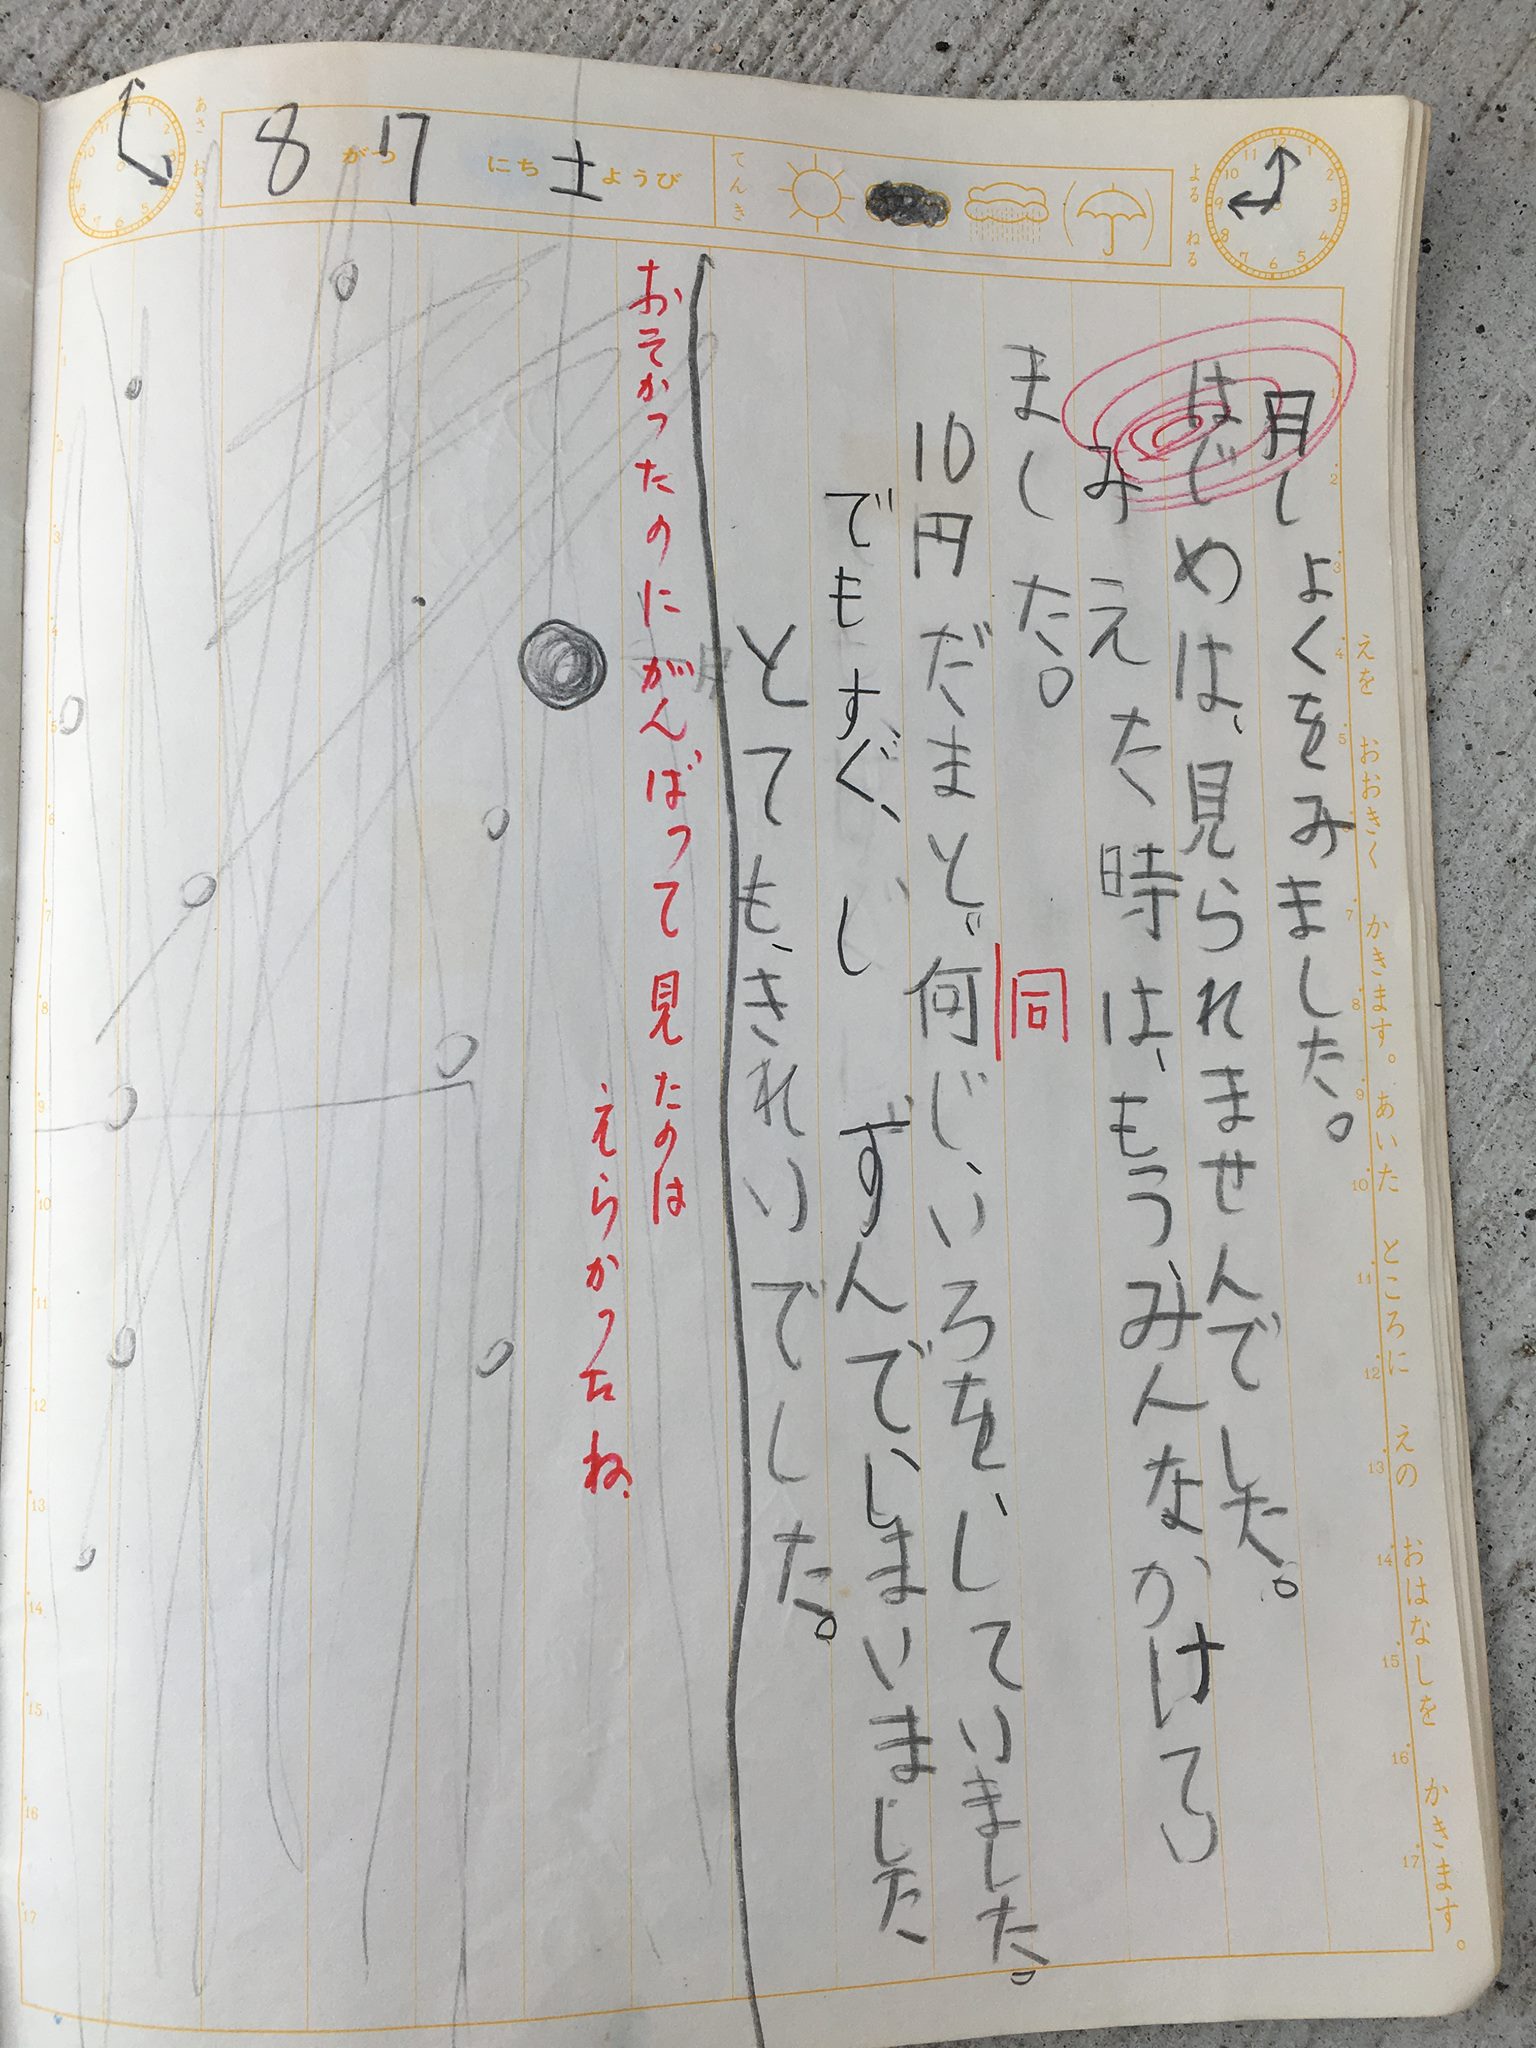 8 がつ 17 にち 土 ようび
てんき
よる ねる
あさ おきる
えを おおきく かきます。あいた ところに えの おはなしを かきます。
月しょくをみました。
はじめは、見られませんでした。
みえた時は、もう、みんなかけてい
ました。
10円だまと゛何じ、いろを、していました。
同
でもすぐ、し ずんで、しまいました
とても、きれいでした。
おそかったのにがんばって見たのは
えらかったね、